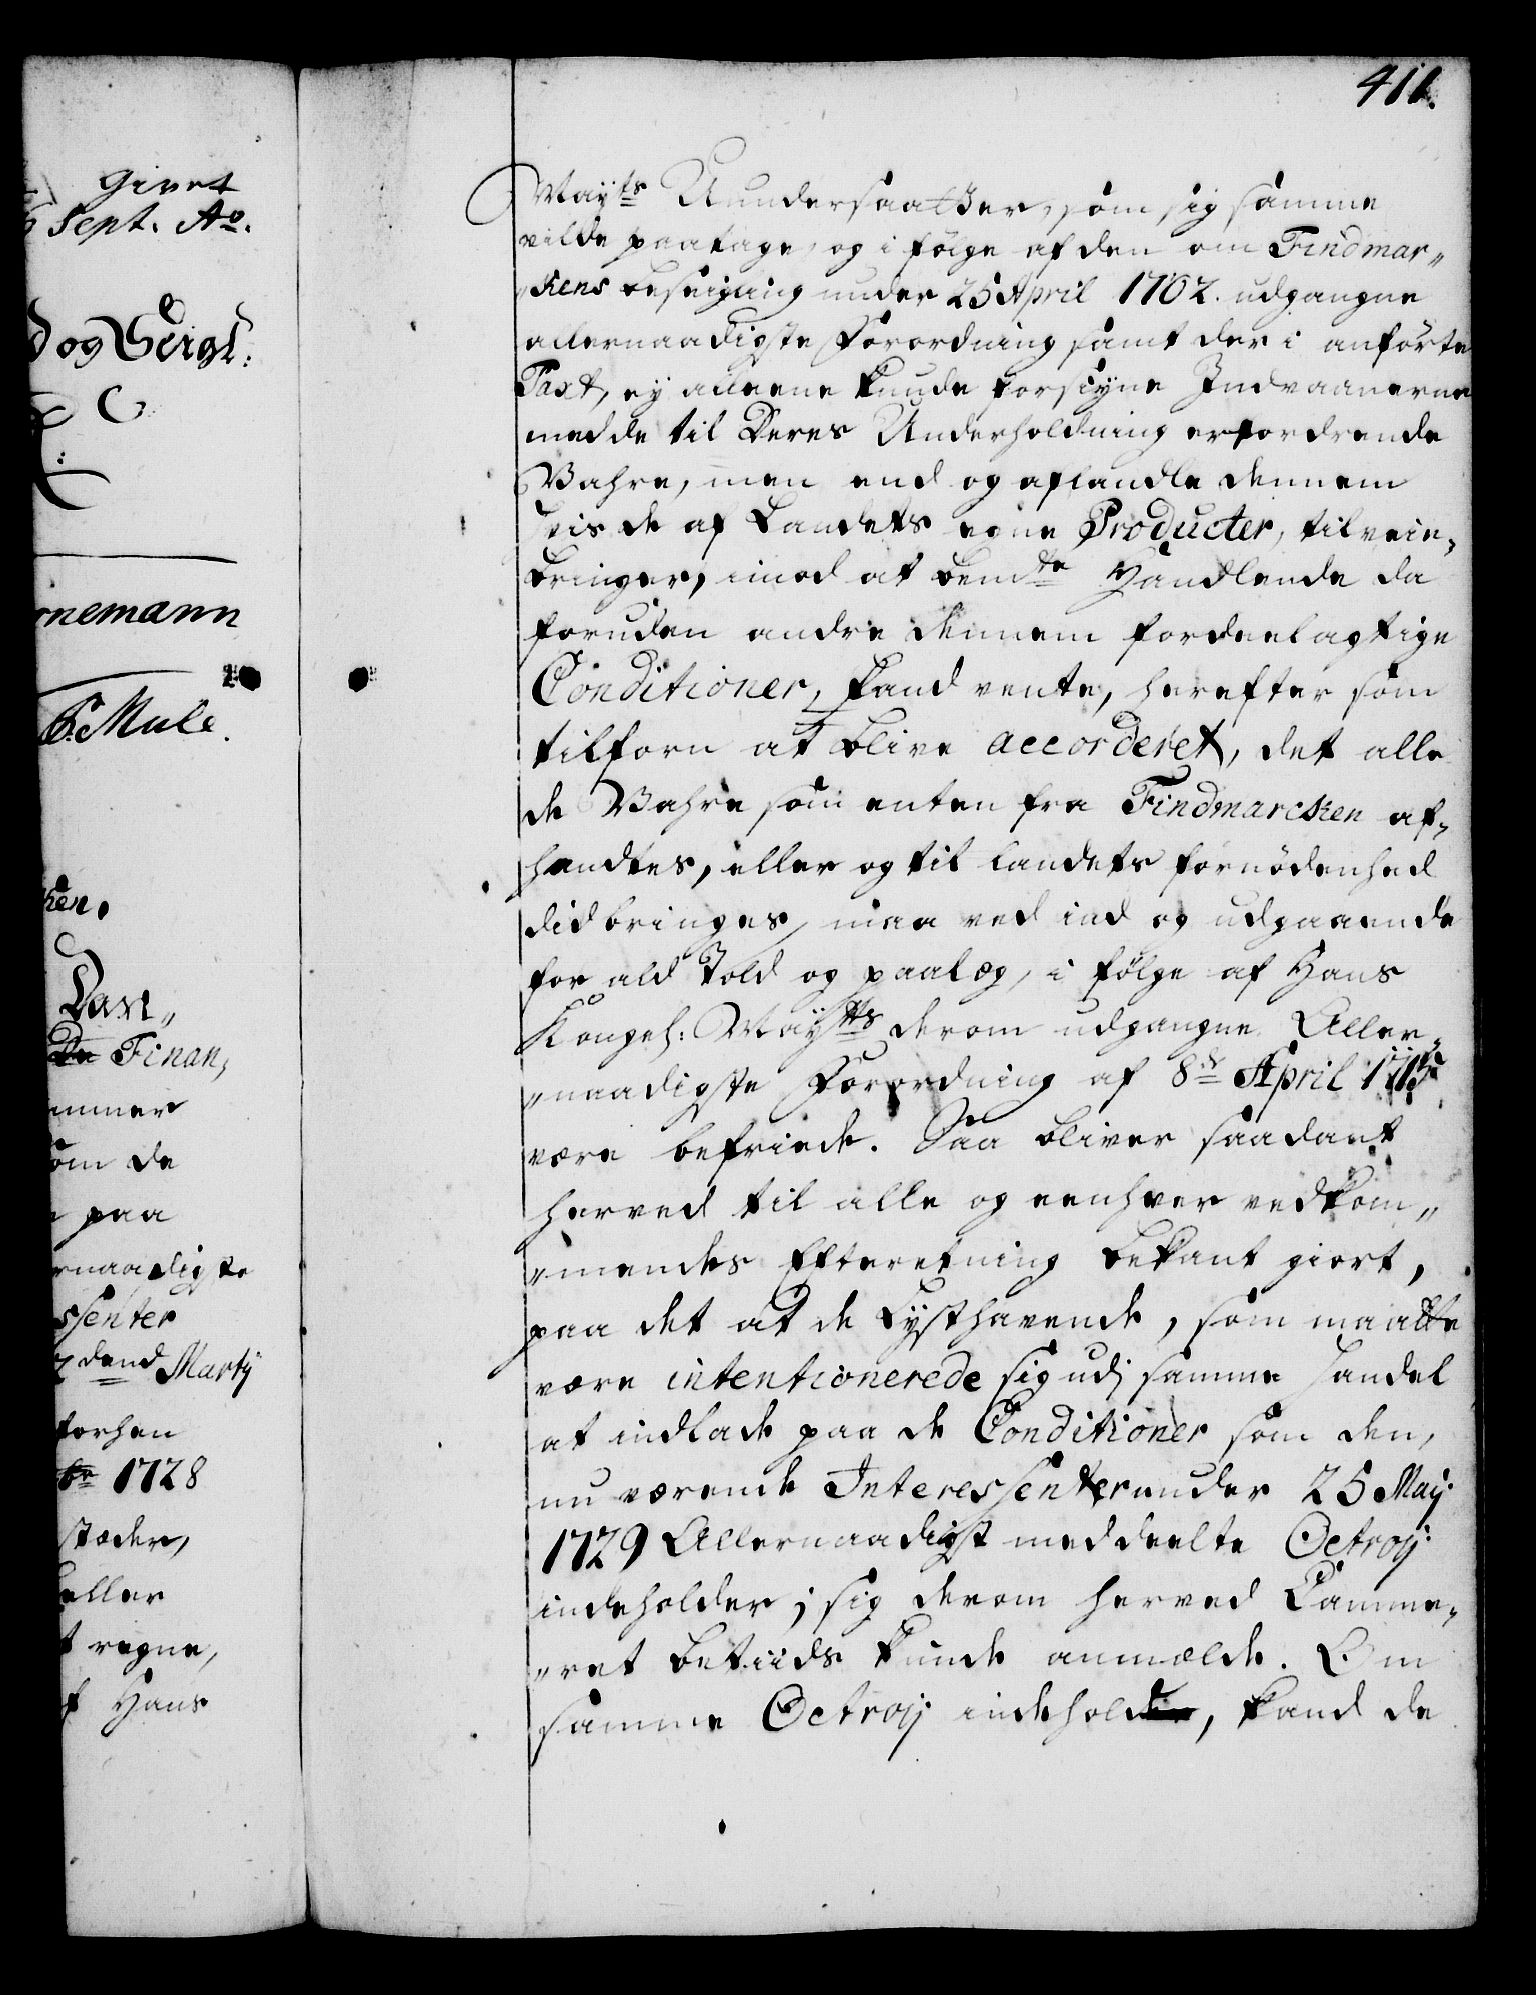 411.
Givet
Sept. Ao.
og Veigt.
rnemann
Mule.
ken.
Dan„
De Finan,
ammer
som de
paa
rnaadigste
ssenter
dend Martij
forhen
1728
stæder,
eller
t regne,
f Hans
Mayts Uundersaatter, som sig samme
vilde paatage, og i følge af den om Findmar„
„kens beseigling under 25 April 1702. udgangne
allernaadigste Forordning samt der i anførte
Taxt, ey alleene kunde forsiyne Indvaanerne
med de til Deres Underholdning erfordrende
Wahre, men end og afhandle dennem
hvis de af Landets egne Producter, tilveie„
bringer, imod at bemte Handlende da
foruden andre dennem fordeelagtige
Conditioner, kand vente, herefter som
tilforn at blive accorderet, det alle
de Wahre som enten fra Findmarcken af„
handles, eller og til landets fornødenhed
didbringes, maa ved ind og udgaaende
for ald Told og paalæg, i følge af Hans
Kongel: Mayts derom udgangne Aller„
„naadigste Forordning af 8de April 1715
være befriede. Saa bliver saadant
herved til alle og eenhver vedkom„
„mendes Efterretning bekant giort,
paa det at de Lysthavende, som maatte
være intentionerede sig udj samme Handel
at indlade paa de Conditioner som den,
nu værende Interessenter under 25 Maij
1729 Allernaadigst meddeelte Octroij
indeholder, sig derom herved Camme„
„ret betiids kunde anmælde. Om
samme Octroij indeholder, kand de